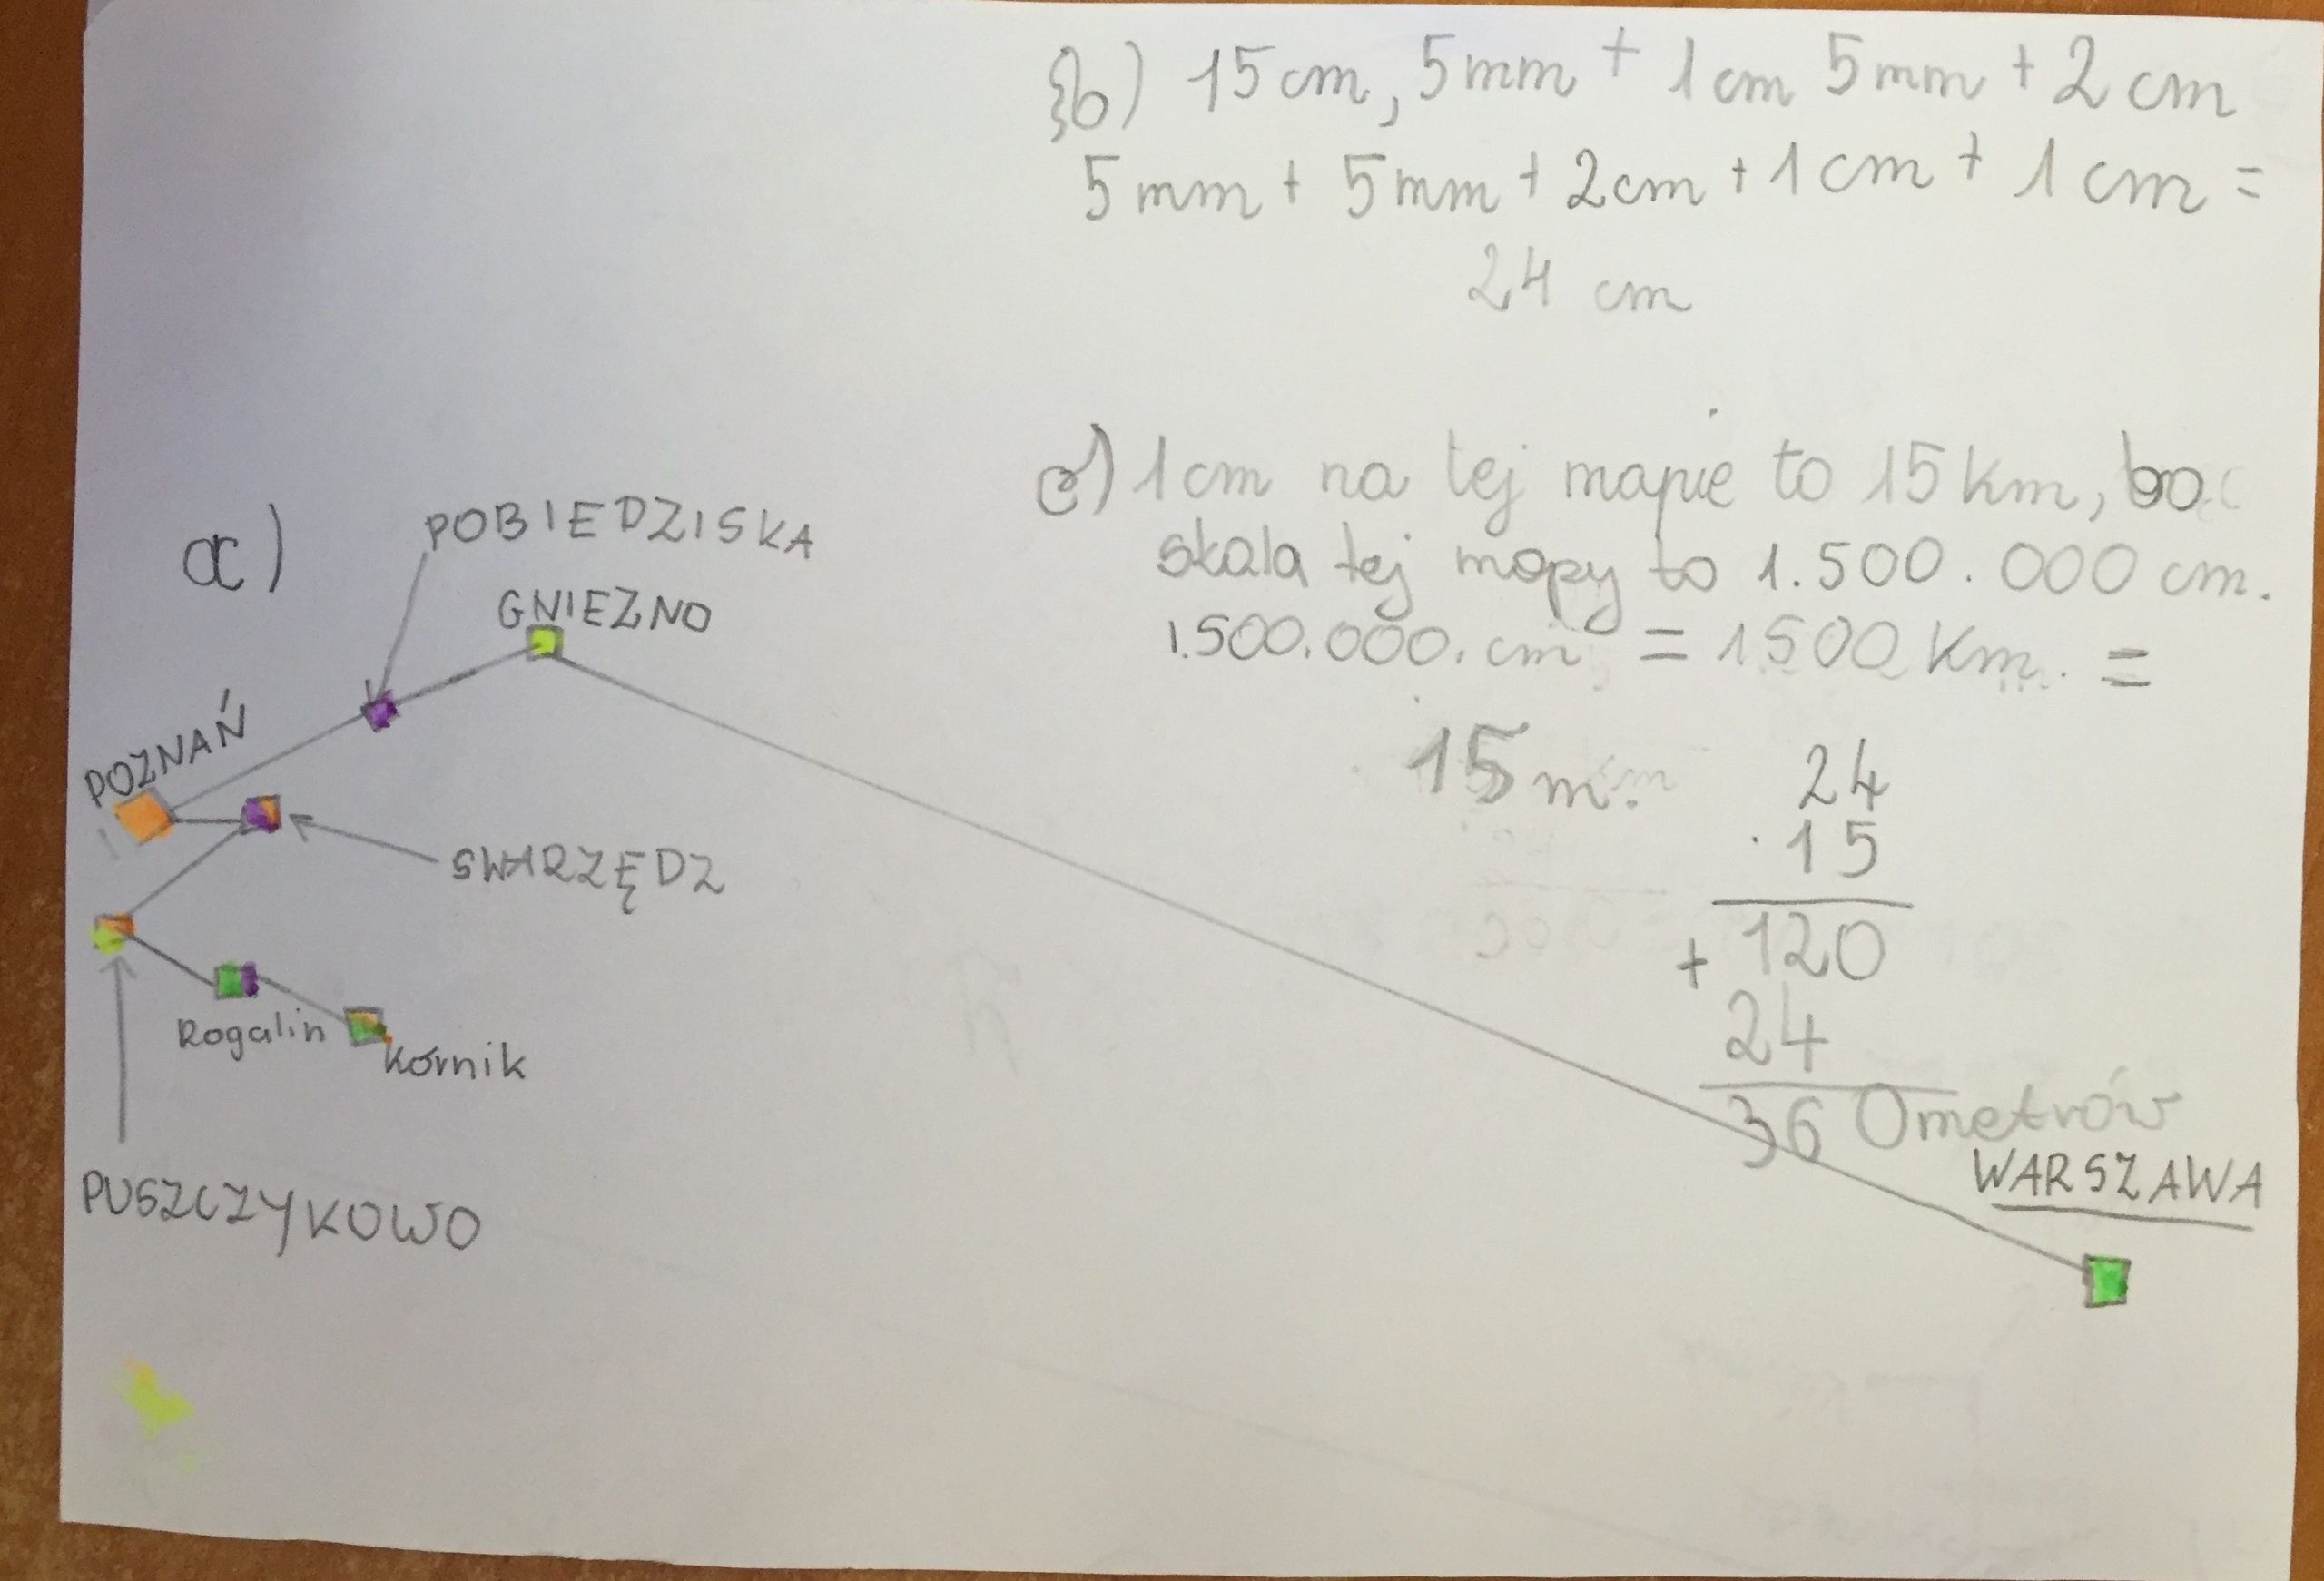 b) 15 cm, 5 mm + 1 cm 5 mm + 2 cm
5 mm + 5 mm + 2 cm + 1 cm + 1 cm =
24 cm
c) 1 cm na tej mapie to 15 km, bo
skala tej mapy to 1.500.000 cm.
1.500.000. cm = 1500 km. =
15 m.
24
· 15
+ 120
24
360 metrów
a)
POBIEDZISKA
GNIEZNO
POZNAŃ
SWARZĘDZ
Rogalin
Kórnik
PUSZCZYKOWO
WARSZAWA